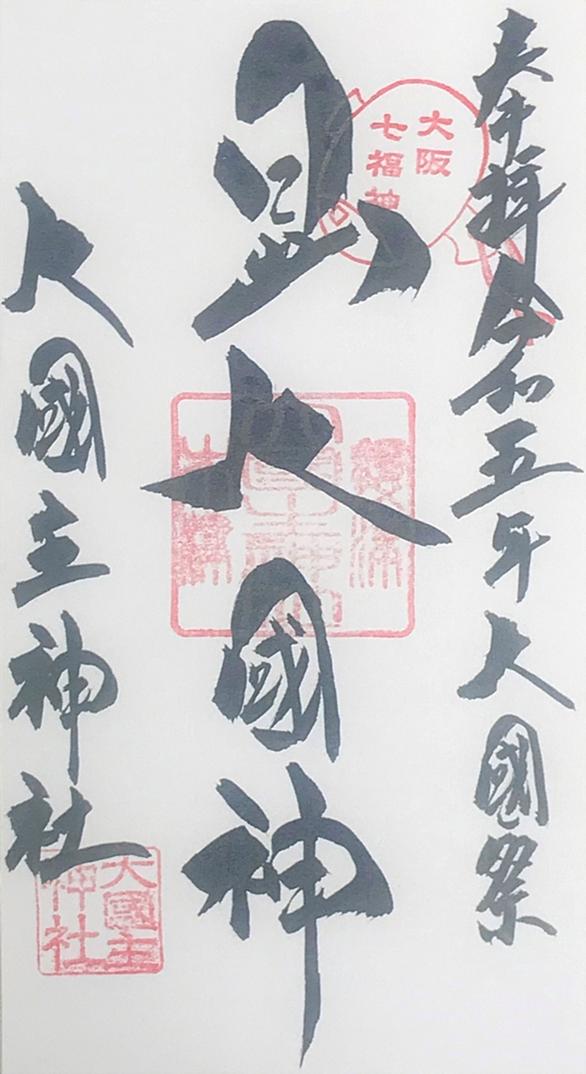 奉拝 令和五年 大國祭
大阪
七福神
日出大國神
大國主神社
大國主
神社